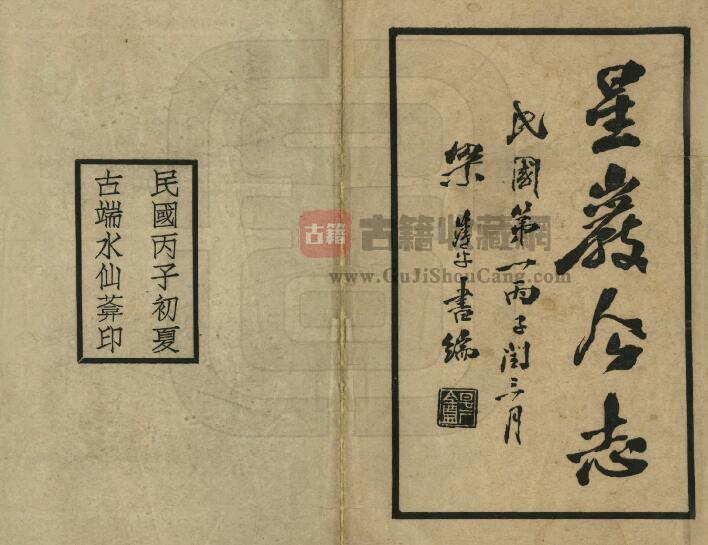 星巖今志
民國第一丙子閏三月
梁書端
古籍
古籍收藏網
www.GuJiShouCang.com
民國丙子初夏
古端水仙葊印